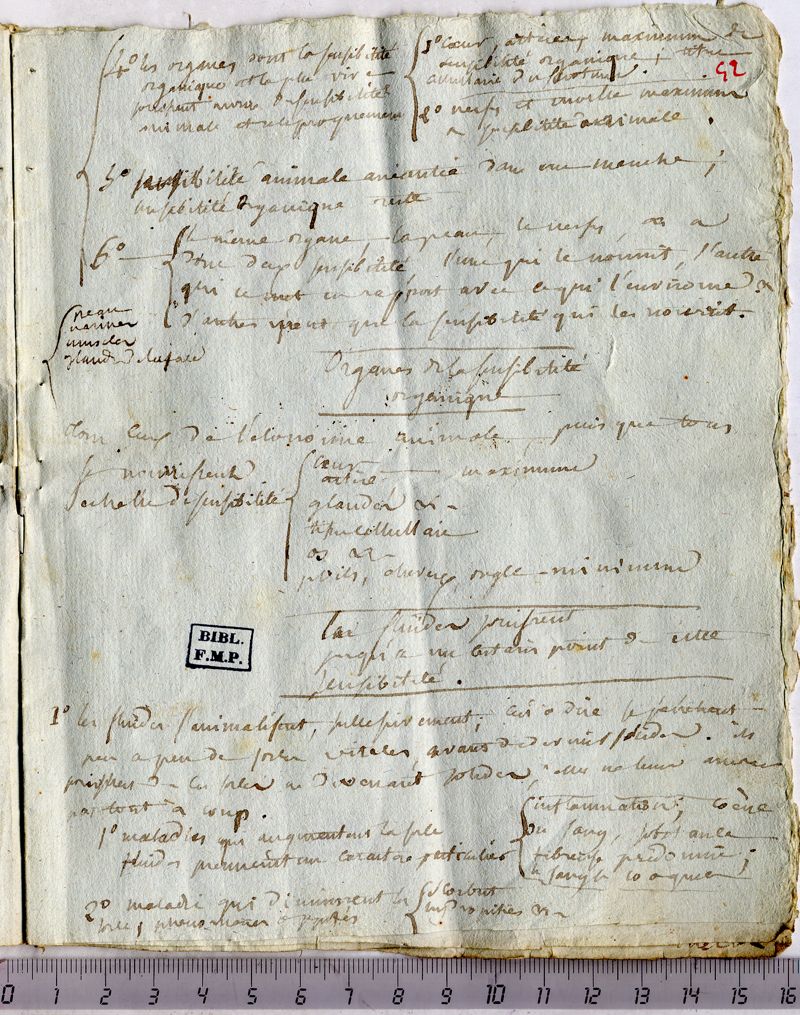 4º les organes dont la sensibilité
organique est la plus vive
jouissent moins de sensibilité
animale et réciproquement
1º cœur, artères, maximum de
sensibilité organique;
animale
2º nerfs et moelle maximum
sensibilité animale.
52
5º sensibilité animale anéantie dans une manche;
sensibilité organique reste
6º le même organe, la peau, le nerfs, os a
donc deux sensibilité, l'une qui le nourrit, l'autre
qui le met en rapport avec ce qui l'environne &
d'autres n'ont que la sensibilité qui les nourrit.
peau
muscles
glandes
Organes de la sensibilité
organique
tous ceux de l'économie animale, puisque tous
se nourrissent
échelle de sensibilité
cœur
artère maximum
glandes &
tissu cellullaire
os &
poils, cheveux, ongle - minimum
les fluides jouissent
jusqu'à un certain point de cette
sensibilité.
1º les fluides s'animalisent, successivement; c'est à dire se pénètrent
peu a peu de forces vitales, avant de devenir solides. ils
de ces forces en devenant solides, elles ne leur
pas tout à coup.
1º maladies qui augmentent la force
fluides prennent un caractère particulier
inflammation; coëne
du sang, substance
fibreuse prédomine;
le sang se coagule
2º maladie qui diminuent la
force; phénomènes opposés
scorbut
hydropisies &
BIBL.
F.M.P.
0 1 2 3 4 5 6 7 8 9 10 11 12 13 14 15 16